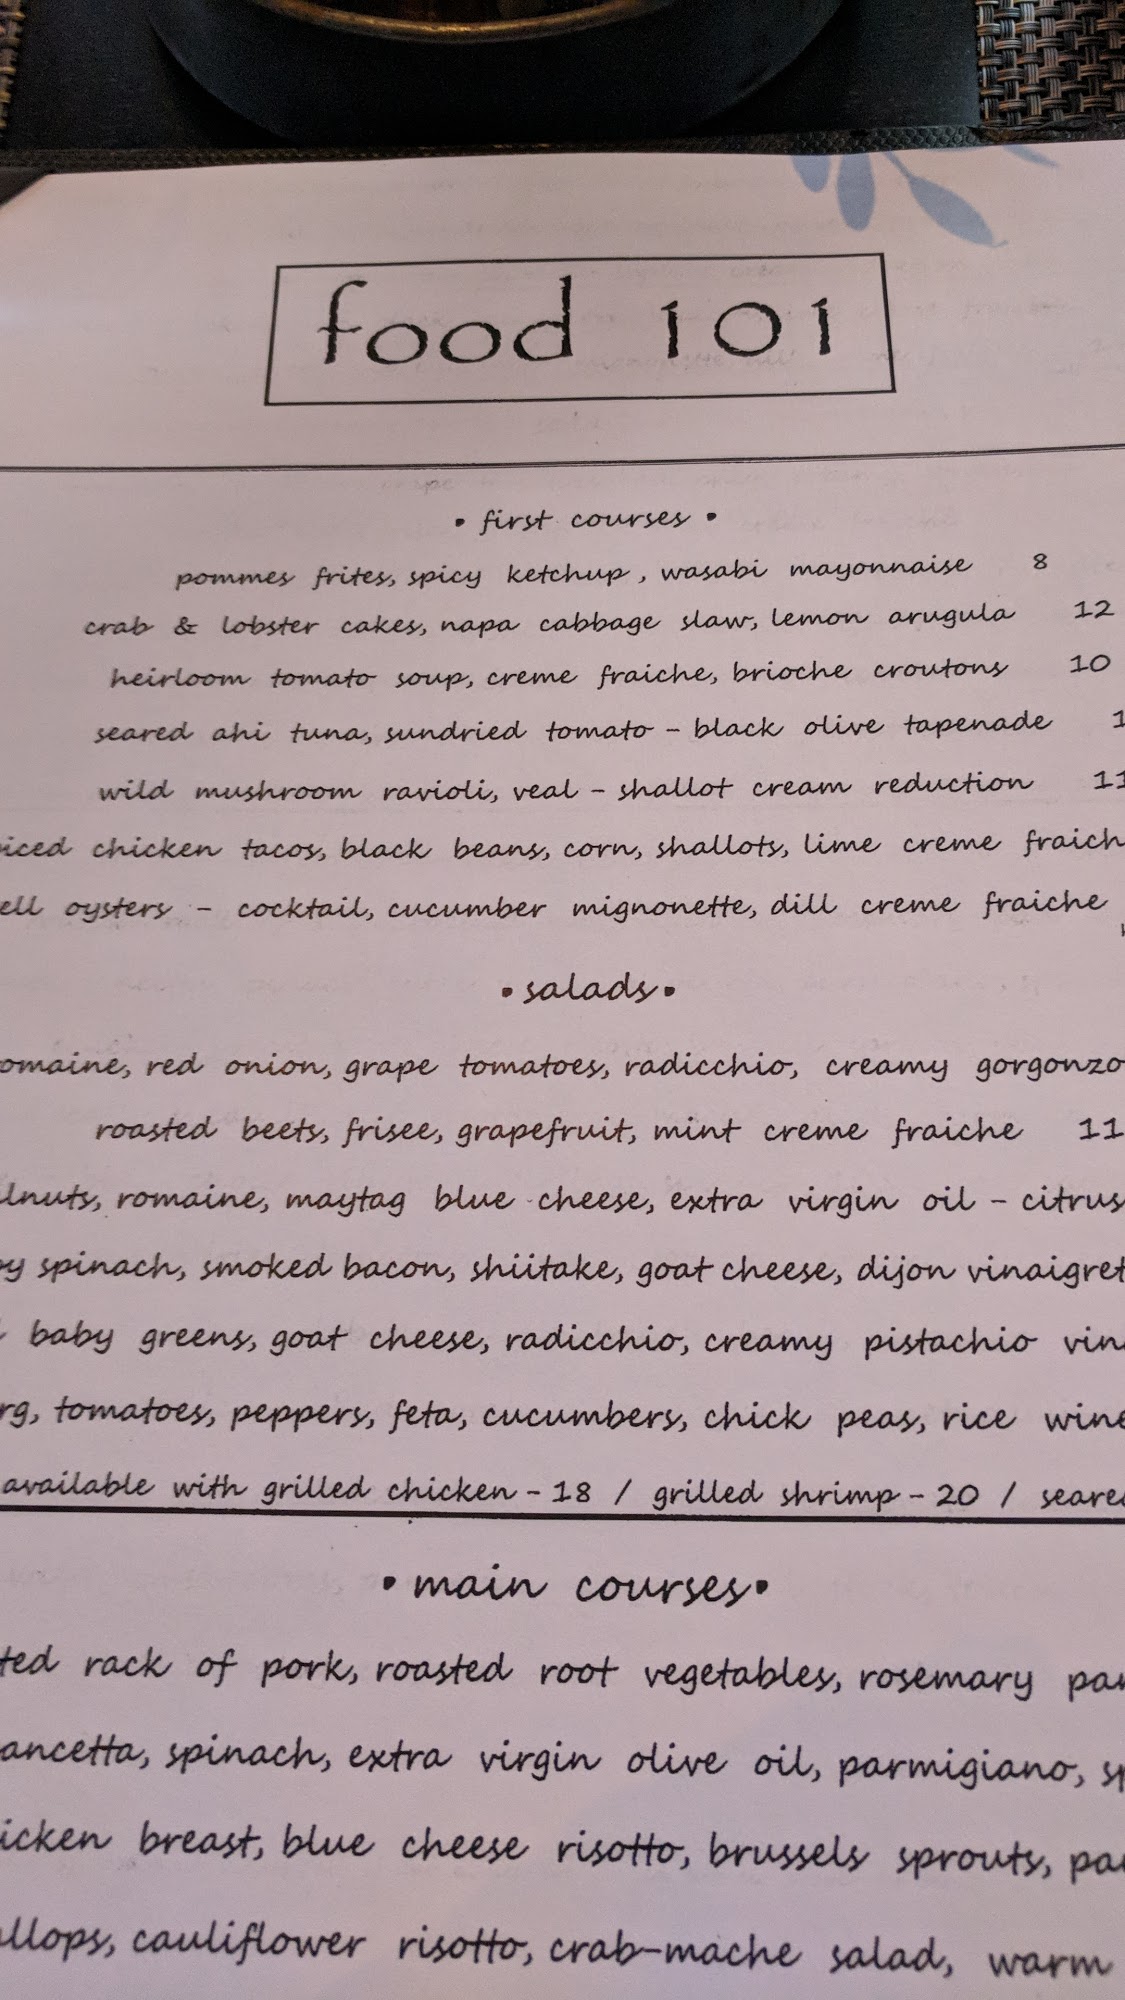 food 101
• first courses •
pommes frites, spicy ketchup, wasabi mayonnaise 8
crab & lobster cakes, napa cabbage slaw, lemon arugula 12
heirloom tomato soup, creme fraiche, brioche croutons 10
seared ahi tuna, sundried tomato - black olive tapenade 1
wild mushroom ravioli, veal - shallot cream reduction 11
iced chicken tacos, black beans, corn, shallots, lime creme fraich
ell oysters - cocktail, cucumber mignonette, dill creme fraiche
• salads •
omaine, red onion, grape tomatoes, radicchio, creamy gorgonzo
roasted beets, frisee, grapefruit, mint creme fraiche 11
lnuts, romaine, maytag blue cheese, extra virgin oil - citrus
by spinach, smoked bacon, shiitake, goat cheese, dijon vinaigret
baby greens, goat cheese, radicchio, creamy pistachio vin
rg, tomatoes, peppers, feta, cucumbers, chick peas, rice wine
available with grilled chicken - 18 / grilled shrimp - 20 / seared
• main courses •
ted rack of pork, roasted root vegetables, rosemary pan
ancetta, spinach, extra virgin olive oil, parmigiano, sp
icken breast, blue cheese risotto, brussels sprouts, pa
llops, cauliflower risotto, crab-mache salad, warm